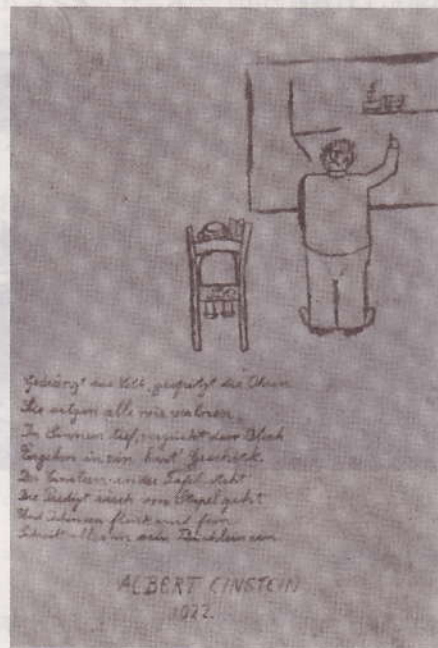 Gedrängt das Volk, gespitzt die Ohren
Sie sitzen alle wie
In Sinnen tief, verzückt der Blick
Ergeben in ein hart Geschick.
Der Einstein an der Tafel steht
Die Predigt rasch von Stapel geht
Und flink und fein
Schreibt alles in sein Büchlein ein
ALBERT EINSTEIN
1922.